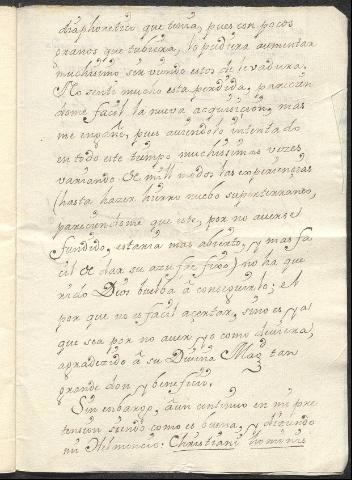 diaphoretico que tenia, pues con pocos
granos que tubiera, lo pudiera aumentar
muchissimo sirviendo estos de levadura.
No senti mucho esta perdida, parecien
dome facil la nueva acquisicion, mas
me engañè, pues aviendolo intentado
en todo este tiempo muchissimas vezes
variando de mil modos las experiencias
(hasta hazer hierro nuebo subterraneo,
pareciendome que este, por no averse
fundido, estaria mas abierto, y mas fa
cil de dar su azufre fixo) no ha que
rido Dios buelba à conseguirlo; el
por que no es facil acertar, sino es ya
que sea por no aver yo como deviera,
agradecido à su Divina Mag. tan
grande don y beneficio.
Sin embargo, aun continuo en mi pre
tension siendo como es buena, y diziendo
mi Helmoncio: Christiani hominis